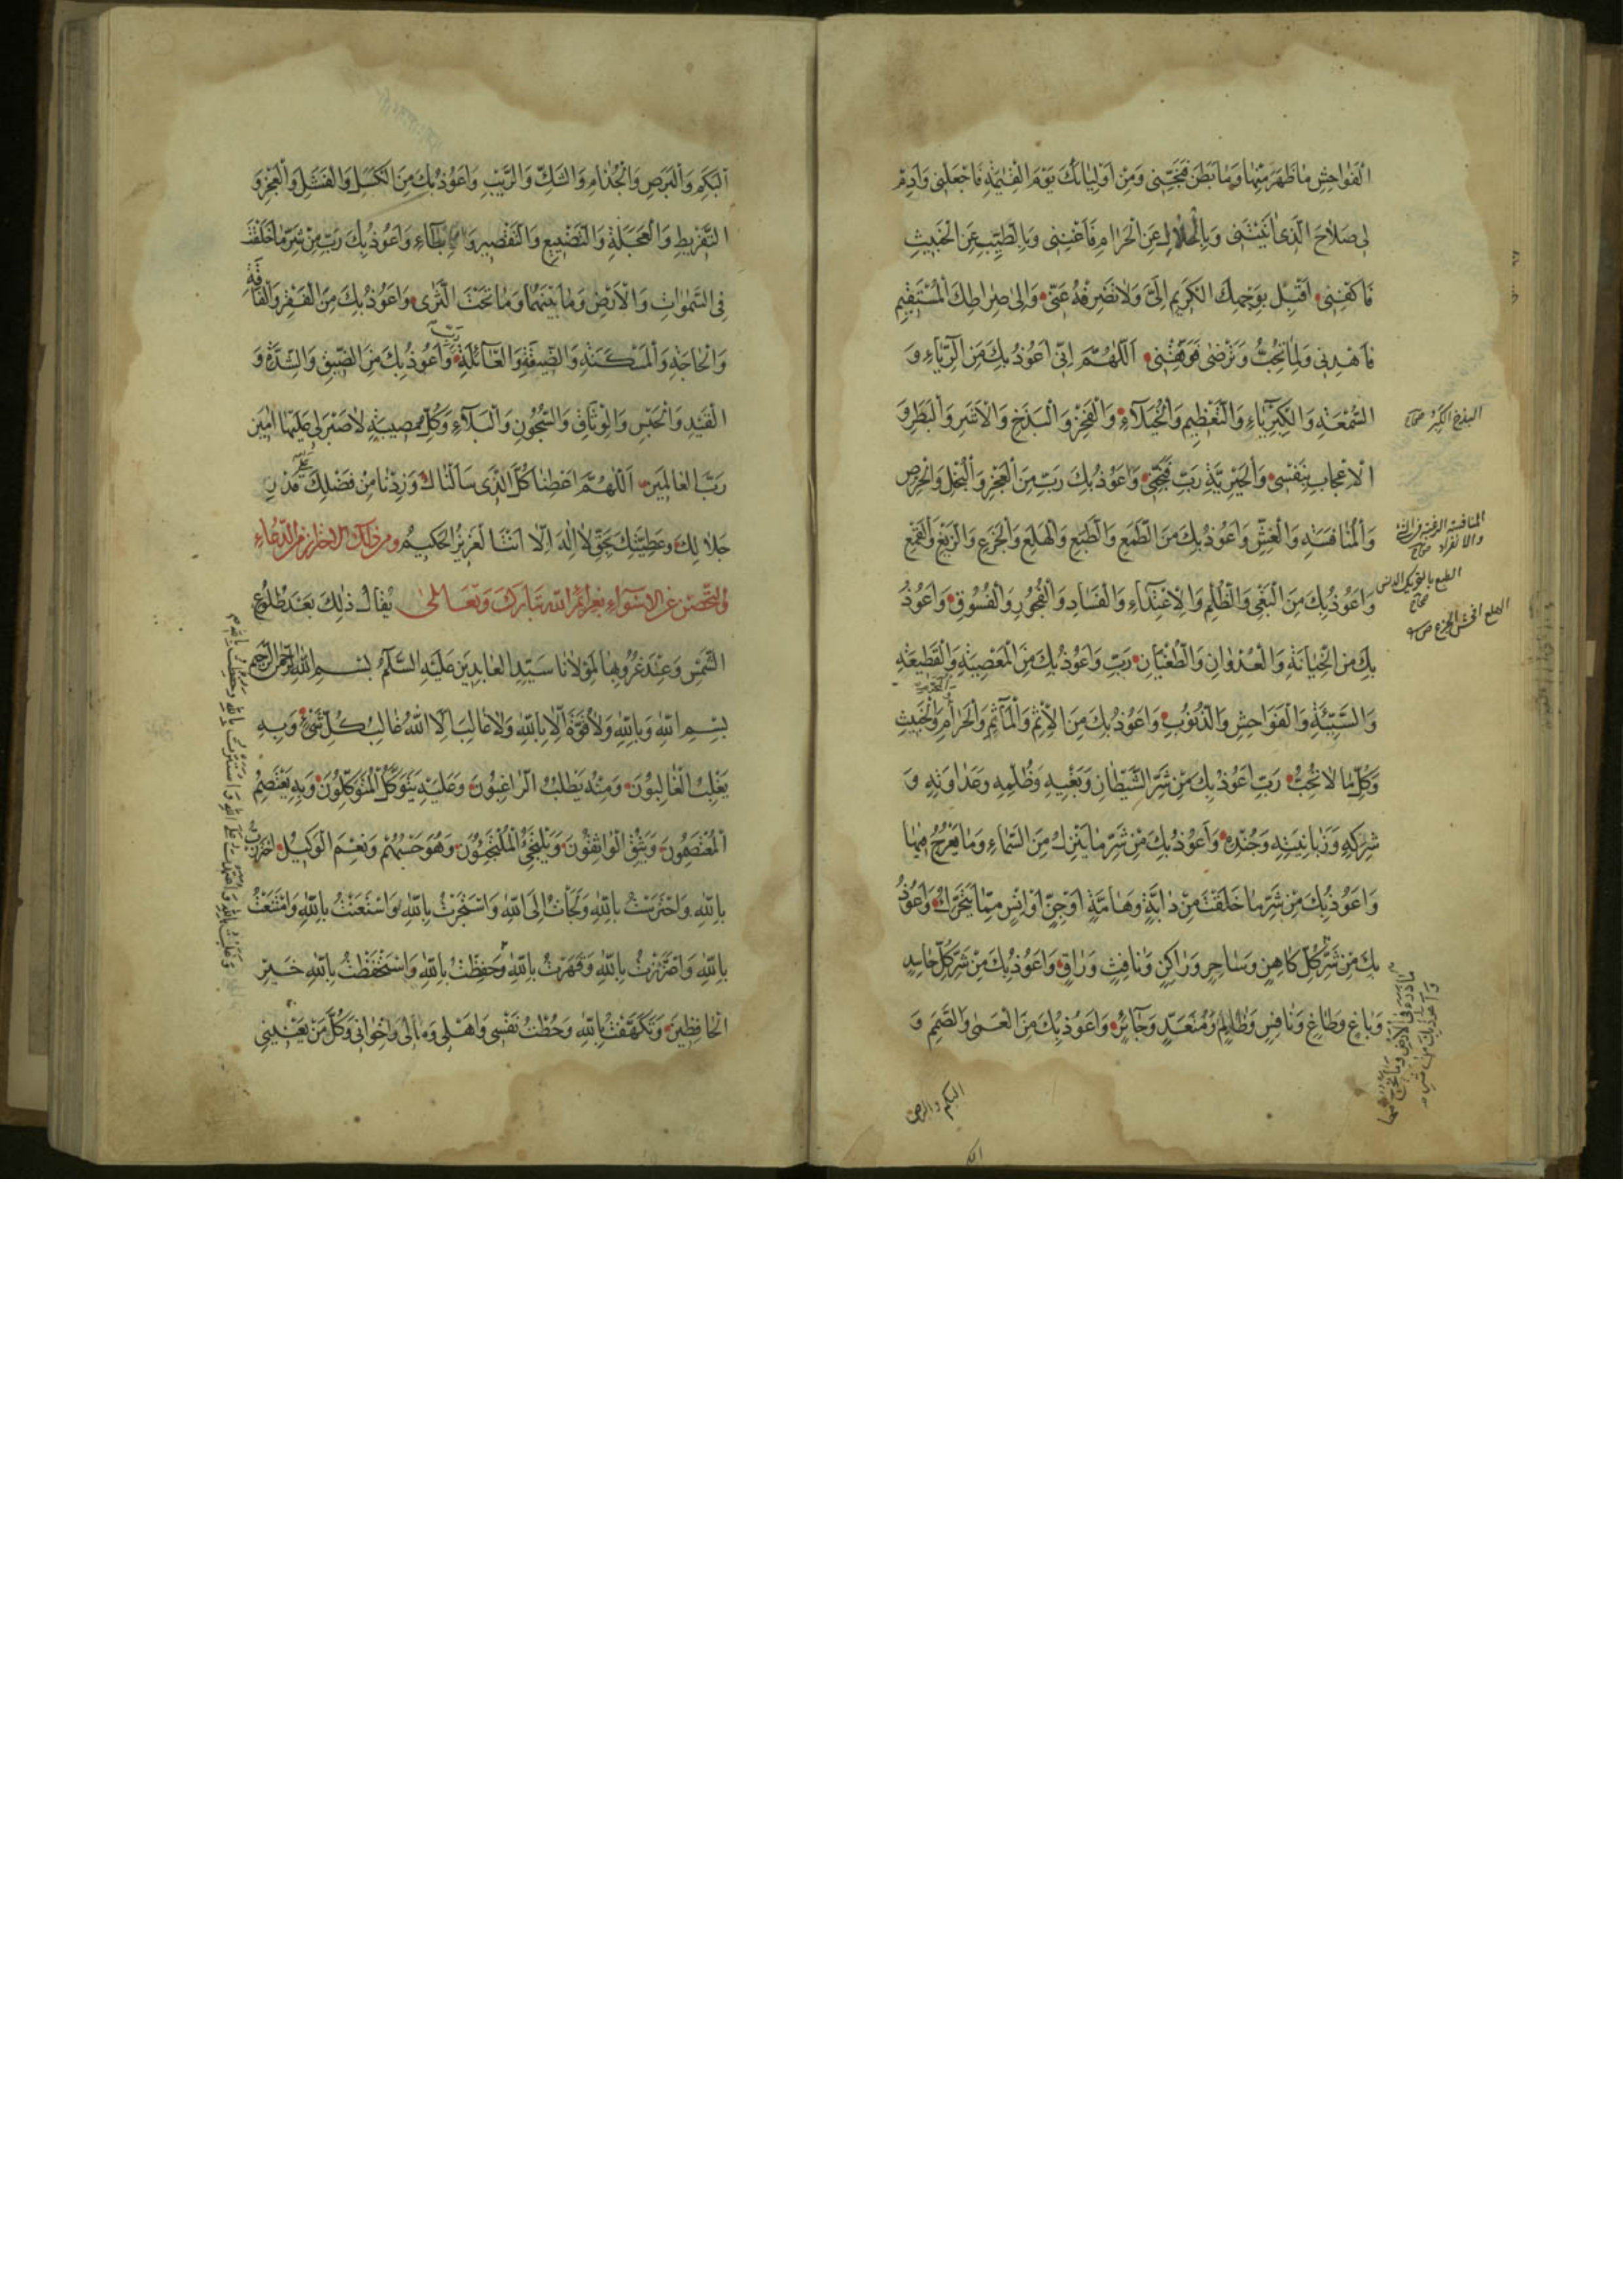 الْفَوٰاحِشِ مٰا ظَهَرَ مِنْهٰا وَمٰا بَطَنَ فَجَنِّبْنى وَمِنْ اَوْلِيٰائِكَ يَوْمَ الْقِيٰمَةِ فَاجْعَلْنى وَاَدِمْ
لى صَلاٰحَ الَّذى اٰتَيْتَنى وَبِالْحَلاٰلِ عَنِ الْحَرٰامِ فَاَغْنِنى وَبِالطَّيِّبِ عَنِ الْخَبيثِ
فَاكْفِنى اَقْبِلْ بِوَجْهِكَ الْكَريمِ اِلَىَّ وَلاٰ تَصْرِفْهُ عَنّى وَاِلىٰ صِرٰاطِكَ الْمُسْتَقيمِ
فَاهْدِنى وَلِمٰا تُحِبُّ وَتَرْضىٰ فَوَفِّقْنى اَللّٰهُمَّ اِنّى اَعُوذُ بِكَ مِنَ الرِّيٰاءِ وَ
السُّمْعَةِ وَالْكِبْرِيٰاءِ وَالتَّعْظيمِ وَالْخُيَلاٰءِ وَالْفَخْرِ وَالْبَذَخِ وَالْاَشَرِ وَالْبَطَرِ وَ
الْاِعْجٰابِ بِنَفْسى وَالْجَبْرِيَّةِ رَبِّ فَنَجِّنى وَاَعُوذُ بِكَ رَبِّ مِنَ الْعَجْزِ وَالْبُخْلِ وَالْحِرْصِ
وَالْمُنٰافَسَةِ وَالْغِشِّ وَاَعُوذُ بِكَ مِنَ الطَّمَعِ وَالطَّبَعِ وَالْهَلَعِ وَالْجَزَعِ وَالزَّيْغِ وَالْقَمْعِ
وَاَعُوذُ بِكَ مِنَ الْبَغْىِ وَالظُّلْمِ وَالْاِعْتِدٰاءِ وَالْفَسٰادِ وَالْفُجُورِ وَالْفُسُوقِ وَاَعُوذُ
بِكَ مِنَ الْخِيٰانَةِ وَالْعُدْوٰانِ وَالطُّغْيٰانِ رَبِّ وَاَعُوذُ بِكَ مِنَ الْمَعْصِيَةِ وَالْقَطيعَةِ
وَالسَّيِّئَةِ وَالْفَوٰاحِشِ وَالذُّنُوبِ وَاَعُوذُ بِكَ مِنَ الْاِثْمِ وَالْمَاْثَمِ وَالْحَرٰامِ وَالْخَبيثِ
وَكُلِّ مٰا لاٰ تُحِبُّ رَبِّ اَعُوذُ بِكَ مِنْ شَرِّ الشَّيْطٰانِ وَبَغْيِهِ وَظُلْمِهِ وَعَدٰاوَتِهِ وَ
شِرْكِهِ وَزَبٰانِيَتِهِ وَجُنْدِهِ وَاَعُوذُ بِكَ مِنْ شَرِّ مٰا يَنْزِلُ مِنَ السَّمٰاءِ وَمٰا يَعْرُجُ فيهٰا
وَاَعُوذُ بِكَ مِنْ شَرِّ مٰا خَلَقْتَ مِنْ دٰابَّةٍ وَهٰامَّةٍ اَوْ جِنٍّ اَوْ اِنْسٍ مِمّٰا يَتَحَرَّكُ وَاَعُوذُ
بِكَ مِنْ شَرِّ كُلِّ كٰاهِنٍ وَسٰاحِرٍ وَرٰاكِنٍ وَنٰافِثٍ وَرٰاقٍ وَاَعُوذُ بِكَ مِنْ شَرِّ كُلِّ حٰاسِدٍ
وَبٰاغٍ وَطٰاغٍ وَنٰافِسٍ وَظٰالِمٍ وَمُتَعَدٍّ وَجٰائِرٍ وَاَعُوذُ بِكَ مِنَ الْعَمىٰ وَالصَّمَمِ وَ
البذخ الكبر صحاح
المنافسة الرغبة فى الشئ
والانفراد صحاح
الطبع بالتحريك الدنس
صحاح
الهلع افحش الجزع ص
البكم والبرص
الْبَكَمِ وَالْبَرَصِ وَالْجُذٰامِ وَالشَّكِّ وَالرَّيْبِ وَاَعُوذُ بِكَ مِنَ الْكَسَلِ وَالْفَشَلِ وَالْعَجْزِ وَ
التَّفْريطِ وَالْعَجَلَةِ وَالتَّضْييعِ وَالتَّقْصيرِ وَالْاِبْطٰاءِ وَاَعُوذُ بِكَ رَبِّ مِنْ شَرِّ مٰا خَلَقْتَ
فِى السَّمٰوٰاتِ وَالْاَرْضِ وَمٰا بَيْنَهُمٰا وَمٰا تَحْتَ الثَّرىٰ وَاَعُوذُ بِكَ مِنَ الْفَقْرِ وَالْفٰاقَةِ
وَالْحٰاجَةِ وَالْمَسْكَنَةِ وَالضّيقَةِ وَالْعٰائِلَةِ رَبِّ وَاَعُوذُ بِكَ مِنَ الضّيقِ وَالشِّدَّةِ وَ
الْقَيْدِ وَالْحَبْسِ وَالْوِثٰاقِ وَالسُّجُونِ وَالْبَلاٰءِ وَكُلِّ مُصيبَةٍ لاٰ صَبْرَ لى عَلَيْهٰا اٰمينَ
رَبَّ الْعٰالَمينَ اَللّٰهُمَّ اَعْطِنٰا كُلَّ الَّذى سَاَلْنٰاكَ وَزِدْنٰا مِنْ فَضْلِكَ عَلىٰ قَدْرِ
جَلاٰلِكَ وَعَظَمَتِكَ بِحَقِّ لاٰ اِلٰهَ اِلاّٰ اَنْتَ الْعَزيزُ الْحَكيمُ ومن ذلك الاحتراز من الدعاء
والتحصن عن الاسواء بعزائم الله تبارك وتعالى يُقٰالُ ذٰلِكَ بَعْدَ طُلُوعِ
الشَّمْسِ وَعِنْدَ غُرُوبِهٰا لِمَوْلاٰنٰا سَيِّدِ الْعٰابِدينَ عَلَيْهِ السَّلاٰمُ بِسْمِ اللّٰهِ الرَّحْمٰنِ الرَّحيمِ
بِسْمِ اللّٰهِ وَبِاللّٰهِ وَلاٰ قُوَّةَ اِلاّٰ بِاللّٰهِ وَلاٰ غٰالِبَ اِلاَّ اللّٰهُ غٰالِبُ كُلِّ شَىْءٍ وَبِهِ
يَغْلِبُ الْغٰالِبُونَ وَمِنْهُ يَطْلُبُ الرّٰاغِبُونَ وَعَلَيْهِ يَتَوَكَّلُ الْمُتَوَكِّلُونَ وَبِهِ يَعْتَصِمُ
الْمُعْتَصِمُونَ وَيَثِقُ الْوٰاثِقُونَ وَيَلْتَجِئُ الْمُلْتَجِئُونَ وَهُوَ حَسْبُهُمْ وَنِعْمَ الْوَكيلُ احْتَرَزْتُ
بِاللّٰهِ وَاحْتَرَسْتُ بِاللّٰهِ وَلَجَاْتُ اِلَى اللّٰهِ وَاسْتَجَرْتُ بِاللّٰهِ وَاسْتَعَنْتُ بِاللّٰهِ وَامْتَنَعْتُ
بِاللّٰهِ وَاعْتَزَزْتُ بِاللّٰهِ وَقَهَرْتُ بِاللّٰهِ وَحَفِظْتُ بِاللّٰهِ وَاسْتَحْفَظْتُ بِاللّٰهِ خَيْرِ
الْحٰافِظينَ وَتَكَهَّفْتُ بِاللّٰهِ وَحُطْتُ نَفْسى وَاَهْلى وَمٰالى وَاِخْوٰانى وَكُلَّ مَنْ يَعْنينى